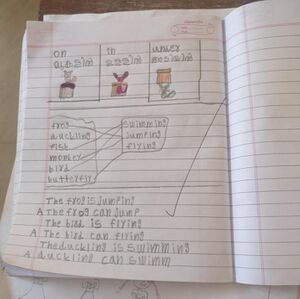 on in under
frog swimming
duckling jumping
fish flying
monkey
bird
butterfly
The frog is Jumping
A The frog can Jump
The bird is flying
A The bird can flying
The duckling is swimming
A duckling can swimm